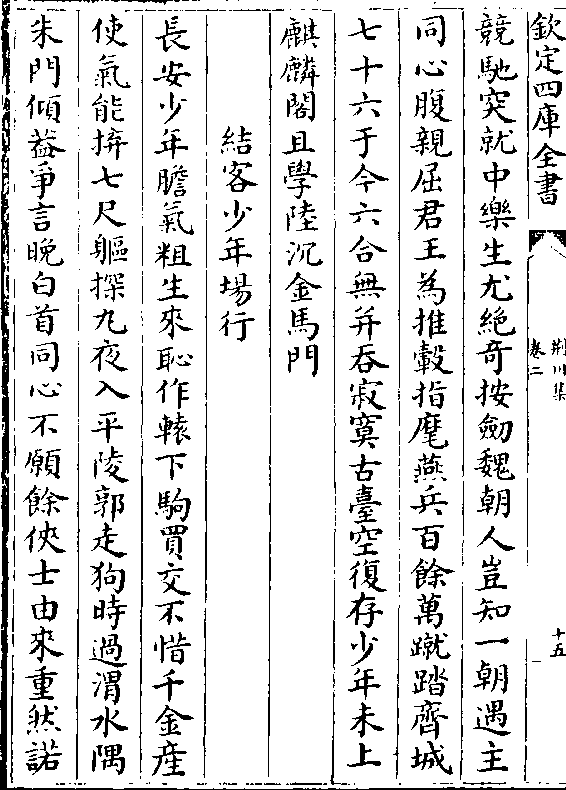 欽定四庫全書
荆川集
卷二
十五
競馳突就中樂生尤絶奇按劒魏朝人豈知一朝遇主
同心腹親屈君王為推轂指麾燕兵百餘萬蹴踏齊城
七十六于今六合無并吞寂寞古臺空復存少年未上
麒麟閣且學陸沉金馬門
結客少年場行
長安少年膽氣粗生來恥作轅下駒買交不惜千金産
使氣能拚七尺軀探丸夜入平陵郭走狗時過渭水隅
朱門傾葢爭言晩白首同心不願餘俠士由來重然諾